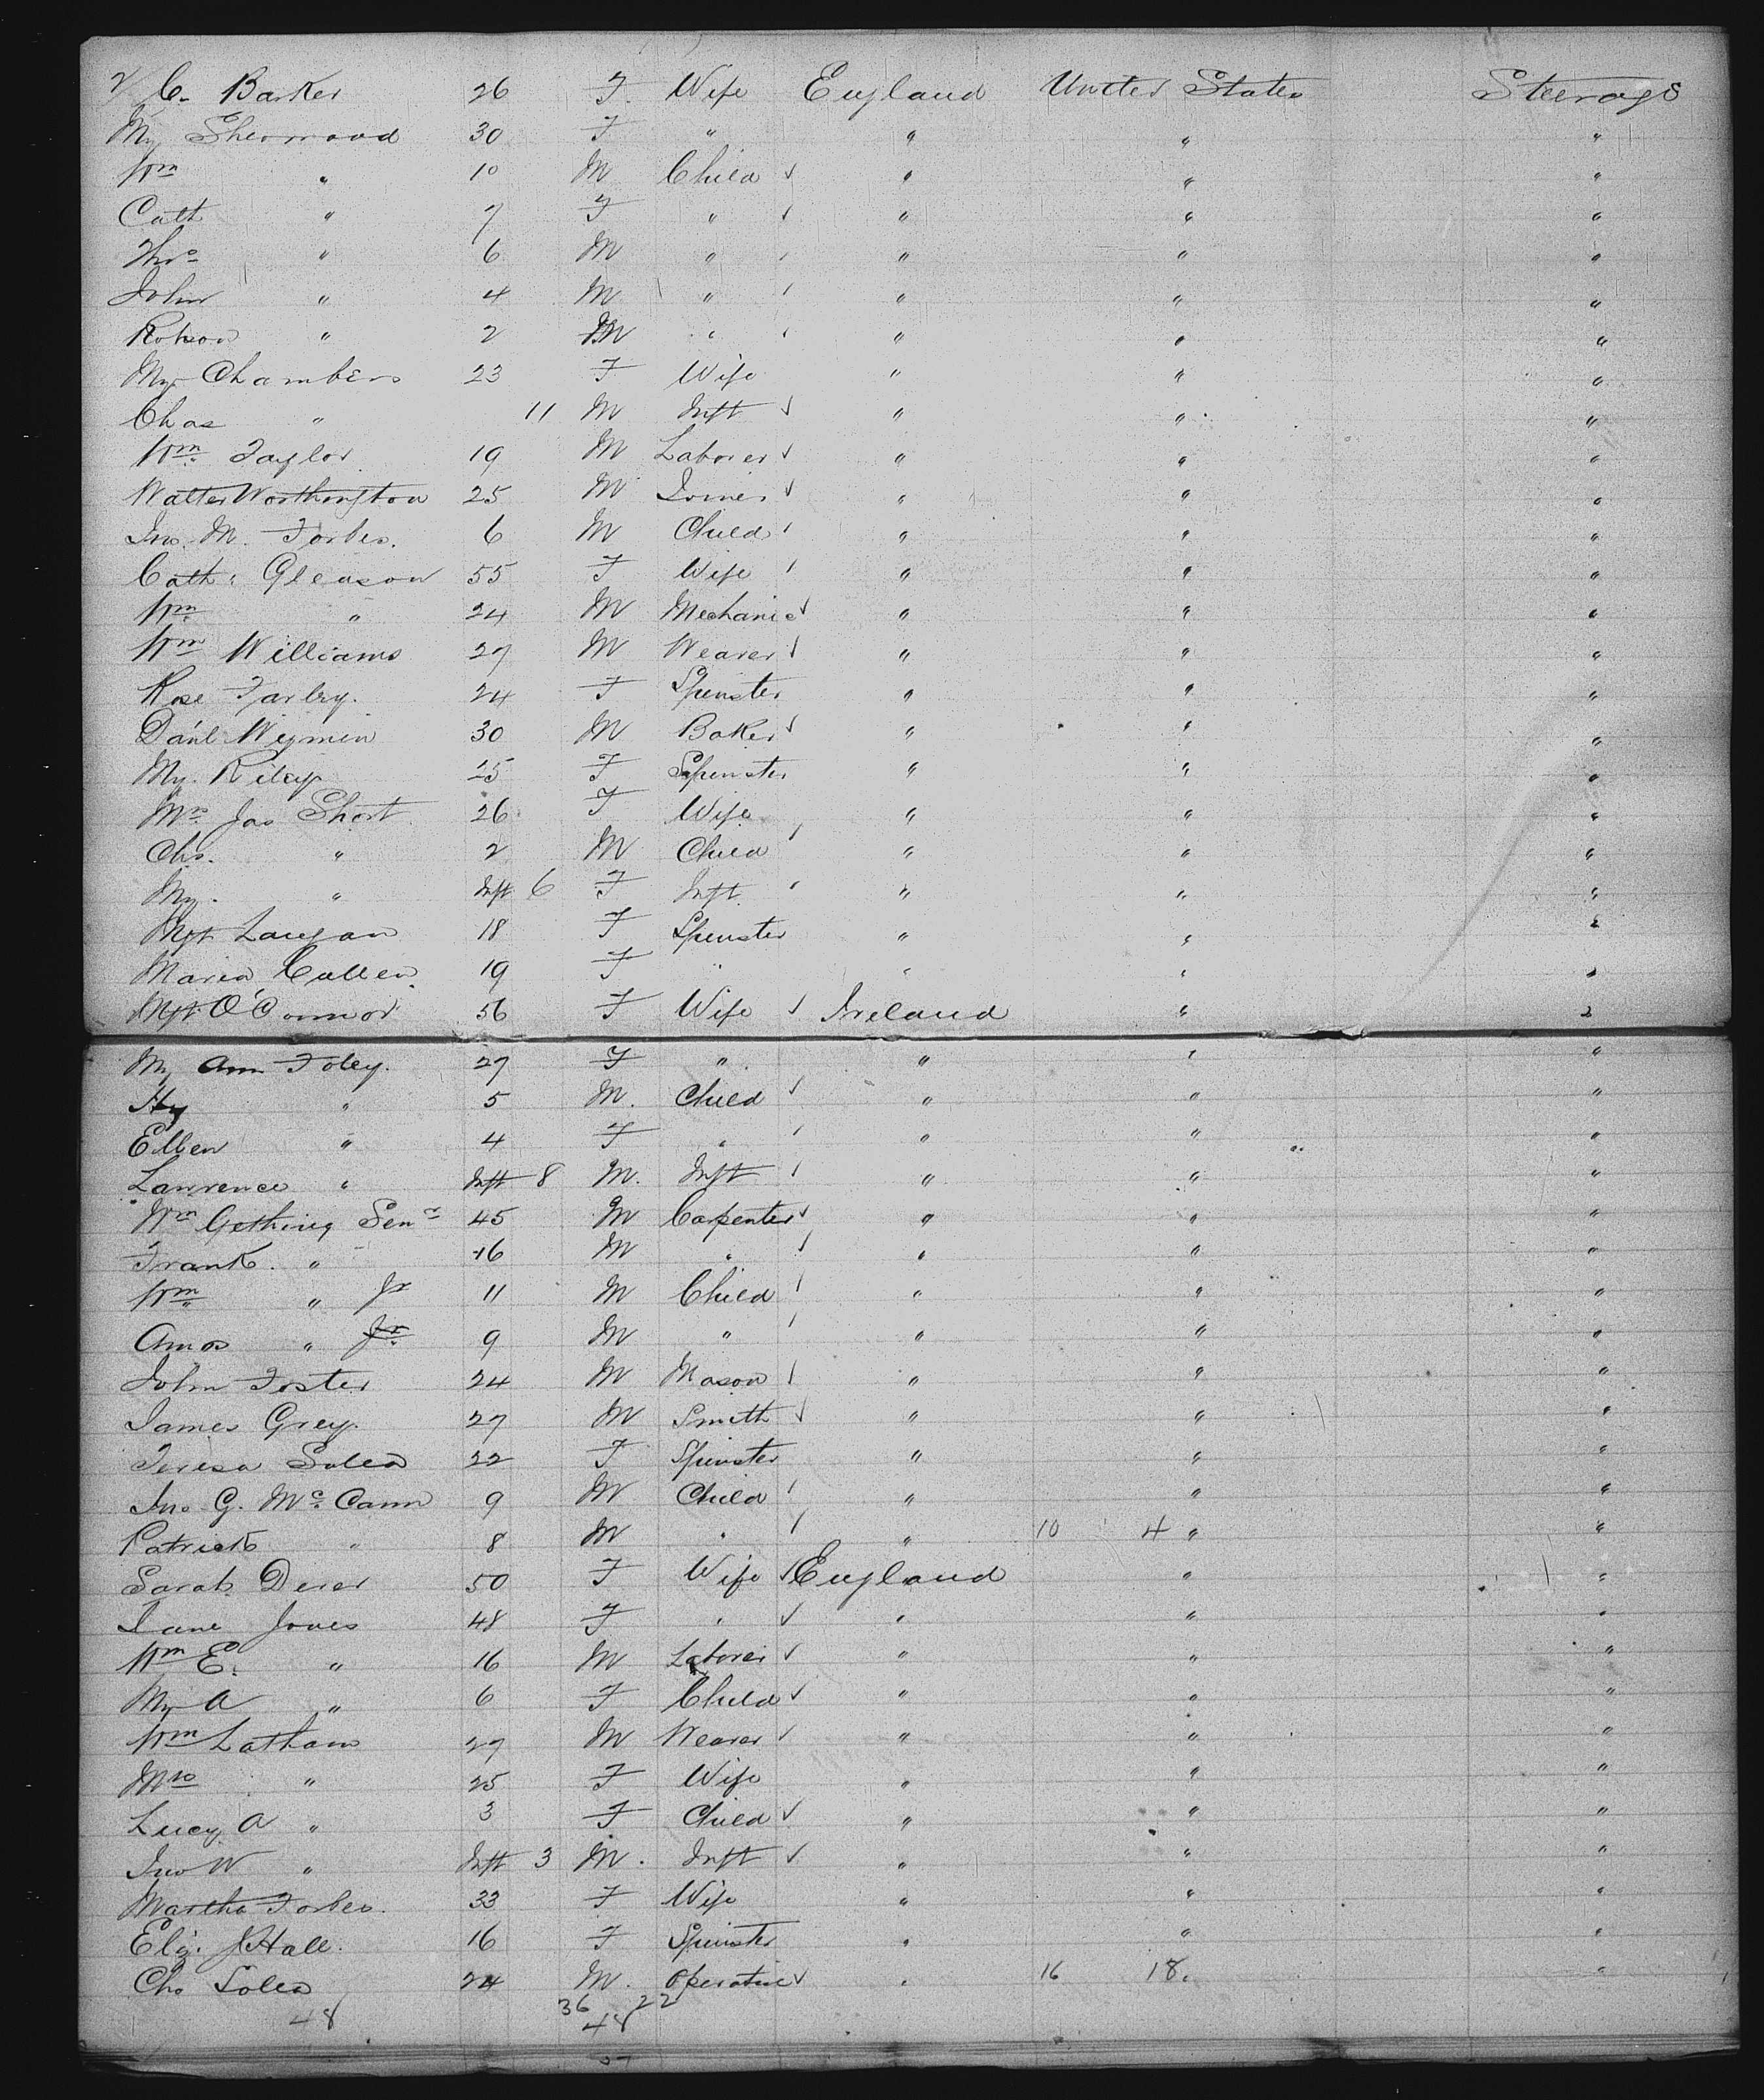 C. Barker 26 F. Wife England United States Steerage
My Sherwood 30 F " " " "
Wm " 10 M Child " " "
Cath " 7 F " " " "
Thos " 6 M " " " "
John " 4 M " " " "
Robson " 2 M " " " "
My Chambers 23 F Wife " " "
Chas " 11 M Inft " " "
Wm Taylor 19 M Laborer " " "
Walter Worthington 25 M Joiner " " "
Jno. M. Forbes. 6 M Child " " "
Cath: Gleason 55 F Wife " " "
Wm " 24 M Mechanic " " "
Wm Williams 27 M Weaver " " "
Rose Farley. 24 F Spinster " " "
Danl Wigmin 30 M Baker " " "
My. Riley 25 F Spinster " " "
Mrs Jas Short 26 F Wife " " "
Chs. " 2 M Child " " "
My. " Inft 6 F Inft " " "
Mgt Langan 18 F Spinster " " "
Maria Cullen 19 F " " " "
Mgt O'Connor 56 F Wife Ireland " "
My Ann Foley. 27 F " " " "
Hy " 5 M. Child " " "
Ellen " 4 F " " " "
Lawrence " Inft 8 M. Inft " " "
Wm Gething Senr 45 M Carpenter " " "
Frank. " 16 M " " " "
Wm " Jr 11 M Child " " "
Amos " Jr. 9 M " " " "
John Foster 24 M Mason " " "
James Grey. 27 M Smith " " "
Teresa 22 F Spinster " " "
Jno G. Mc. Cann 9 M Child " " "
Patrick " 8 M " " 10 4 " "
Sarah 50 F Wife England " "
Jane Jones 48 F " " " "
Wm E. " 16 M Laborer " " "
My A " 6 F Child " " "
Wm Latham 27 M Weaver " " "
Mrs " 25 F Wife " " "
Lucy A " 3 F Child " " "
Jno W " Inft 3 M. Inft " " "
Martha Forbes. 33 F Wife " " "
Eliz. J Hall. 16 F Spinster " " "
Chs 24 M. Operative " 16 18. "
48 36 22
48